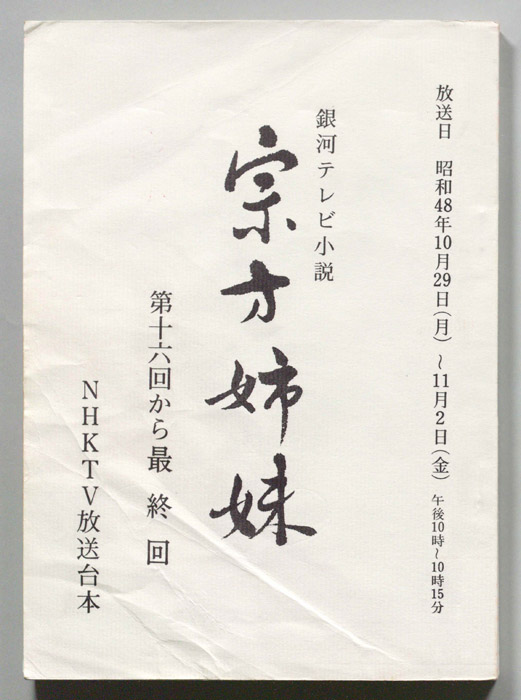 放送日 昭和48年10月29日(月)～11月2日(金) 午後10時～10時15分
銀河テレビ小説
宗方姉妹
第十六回から最終回
NHKTV放送台本